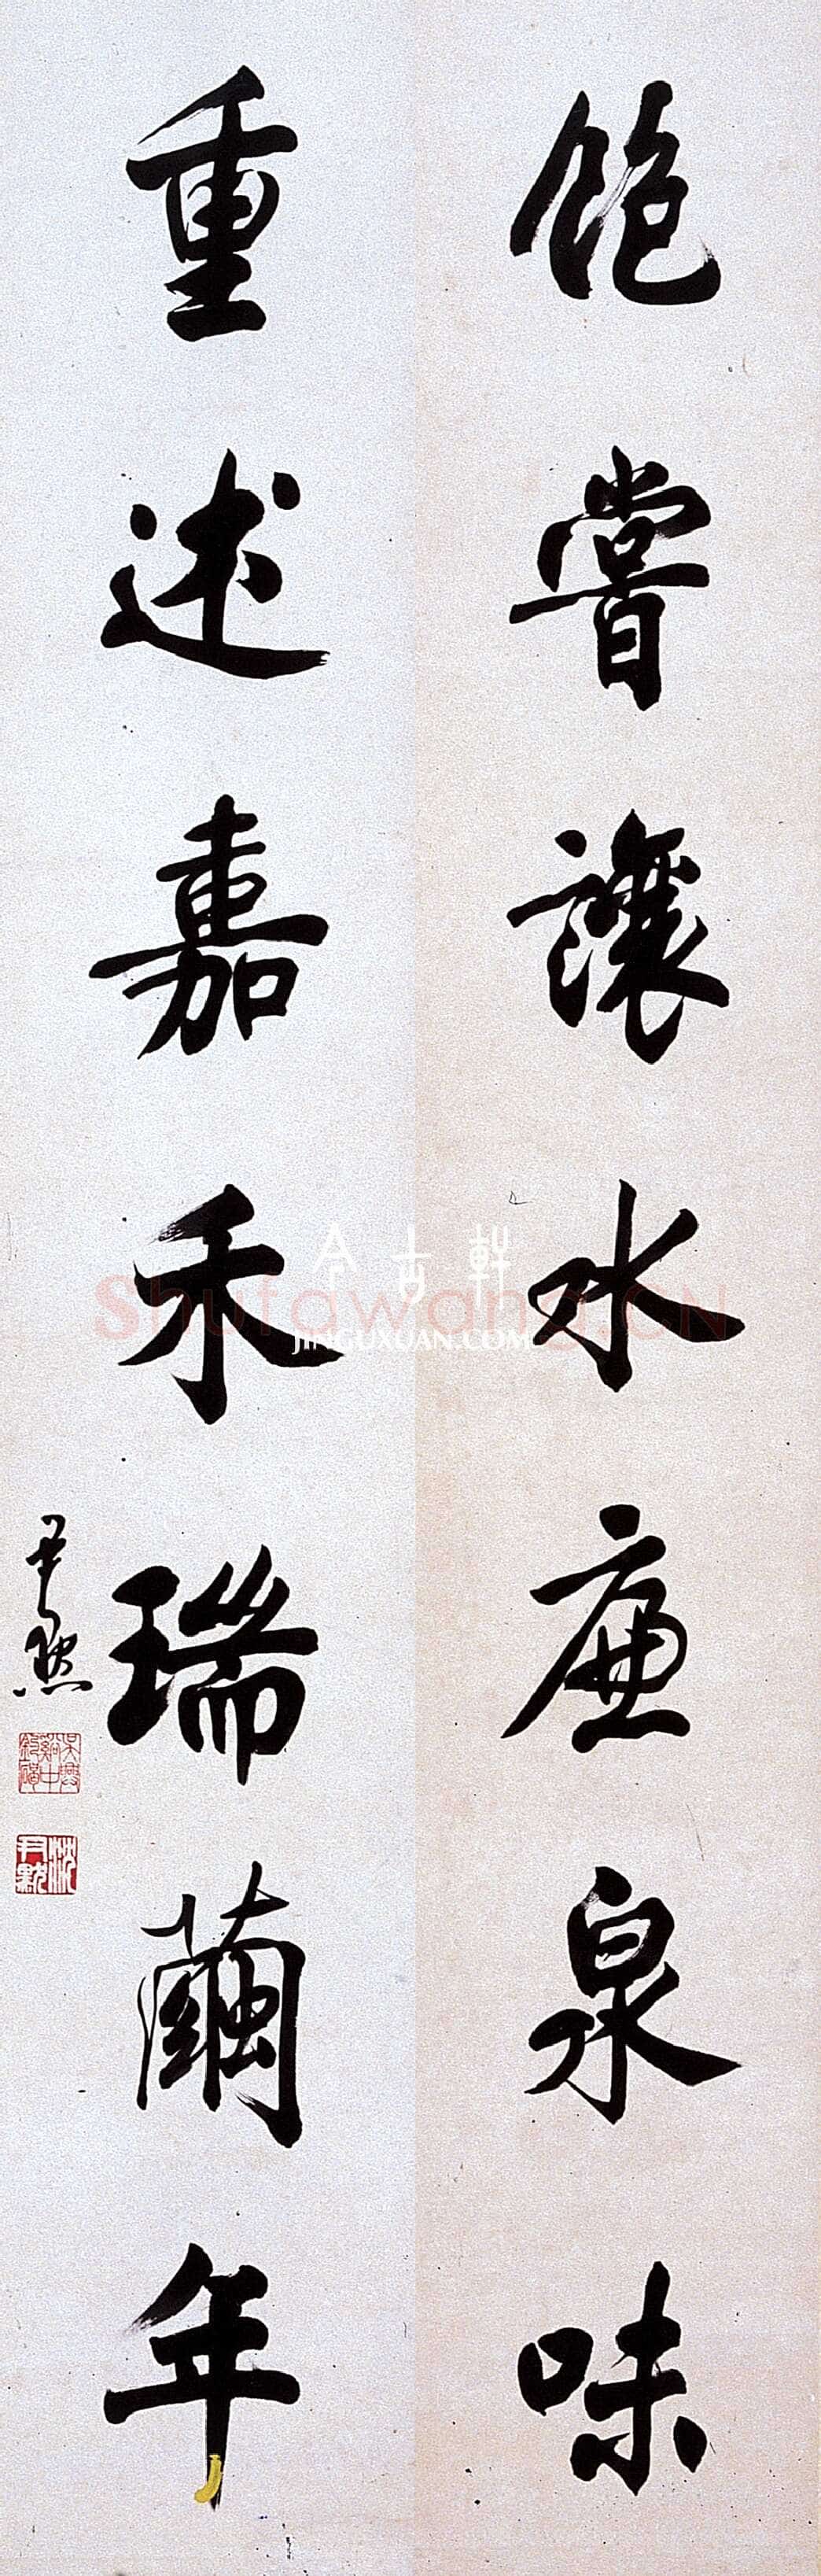 飽嘗讓水廉泉味
重述嘉禾瑞繭年
尹默
沈尹默
今古軒
JINGUXUAN.COM
Shufawang.CN